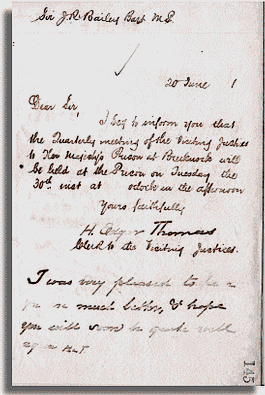 Sir J. R. Bailey Bart M.P.
20 June 1
Dear Sir,
I beg to inform you that
the Quarterly meeting of the Visiting Justices
to Her Majesty's Prison at Brecknock will
be held at the Prison on Tuesday the
30th inst at oclock in the afternoon
Yours faithfully
H. Edgar Thomas
Clerk to the Visiting Justices.
I was very pleased to
you so much better, & hope
you will soon be quite well
again H.E.T
145